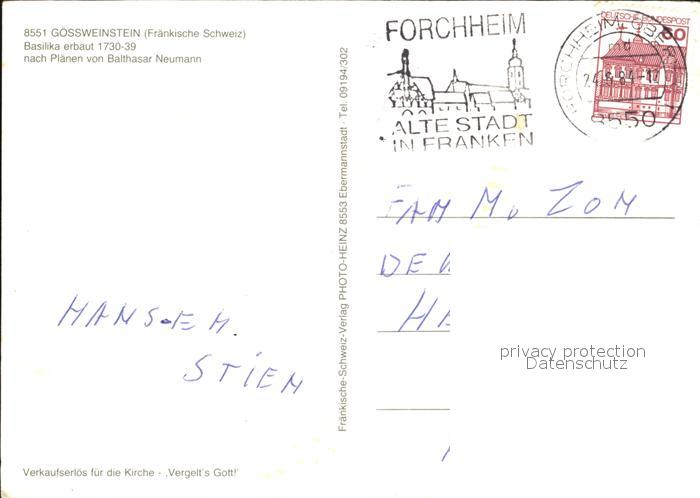 8551 GÖSSWEINSTEIN (Fränkische Schweiz)
Basilika erbaut 1730-39
nach Plänen von Balthasar Neumann
FORCHHEIM
ALTE STADT
IN FRANKEN
DEUTSCHE BUNDESPOST
60
FORCHHEIM, OBERFR
24.8.84-17
8550
Fränkische-Schweiz-Verlag PHOTO-HEINZ 8553 Ebermannstadt · Tel. 09194/302
FAM M. ZOM
DE
HANS-E H.
STIEM
privacy protection
Datenschutz
Verkaufserlös für die Kirche - ‚Vergelt's Gott!'